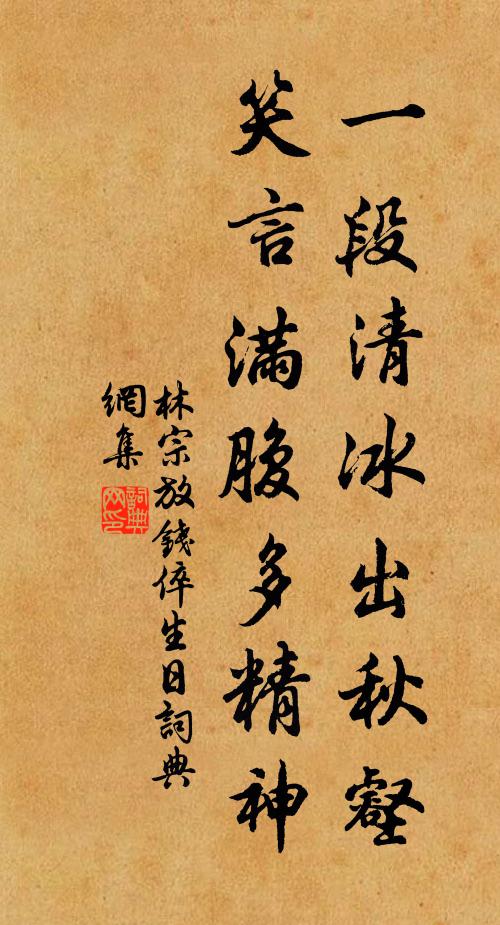 一段清冰出秋壑
笑言滿腹多精神
林宗放錢倅生日詞典
網集
詞典网印